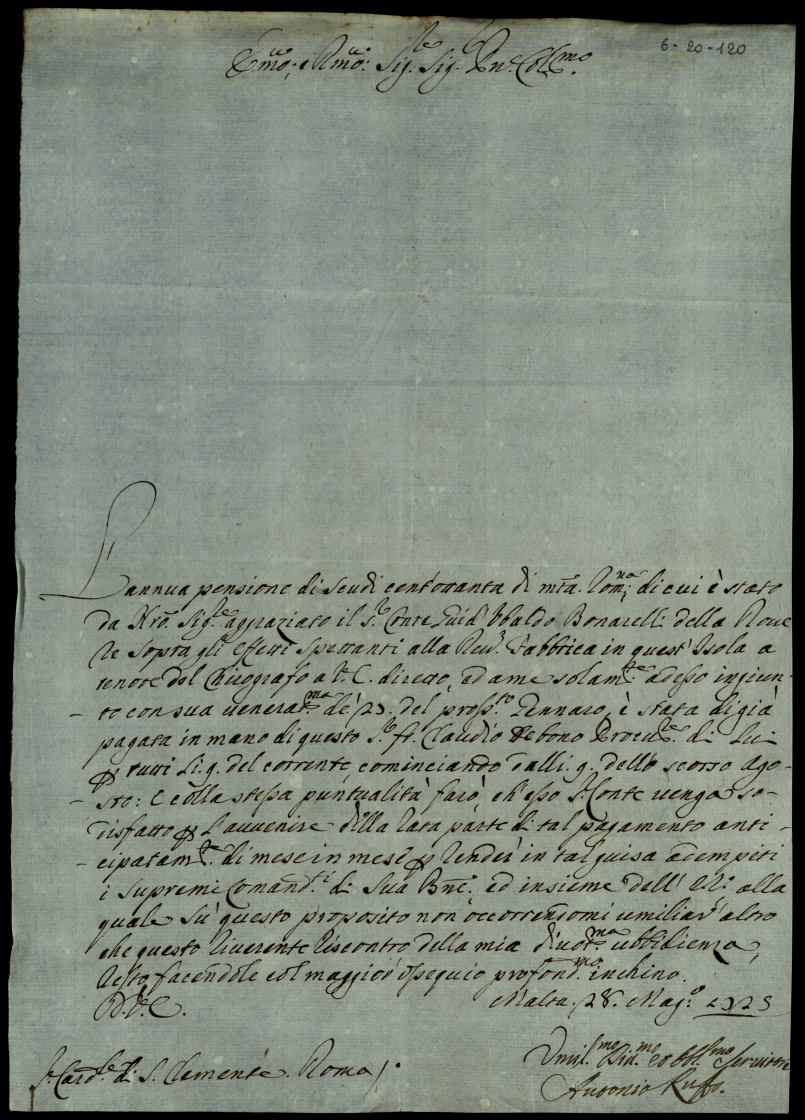 6-20-120
Em̃o; e Rm̃o: Sig.re Sig. Pne. Col.mo
L'annua pensione di Scudi cent'ottanta di mta. Rom.na; di cui è stato
da Nro. Sig.re aggraziato il S.r Conte Guid'Ubaldo Bonarelli della Rove
re sopra gli effetti spettanti alla Rev. Fabbrica in quest'Isola a
tenore del Chirografo a V. E. diretto, ed a me solam.te adesso ingiun-
to con sua venerat.ma de' 23. del pross.to Gennaro, è stata di già
pagata in mano di questo S.r fr. Claudio Debono Procu.re di Lui
p tutti li 9. del corrente cominciando dalli 9. dello scorso Ago-
sto: E colla stessa puntualità farò, ch'esso S. Conte venga so-
disfatto p l'avvenire della rata parte di tal pagamento anti-
cipatam.te di mese in mese p render in tal guisa adempiti
i supremi comand.ti di Sua Bne. ed insieme dell'E.V. alla
quale su questo proposito non occorrendomi umiliar' altro
che questo riverente riscontro della mia divot.ma ubbidienza,
resto facendole col maggior' ossequio profond.mo inchino.
D. V. E. Malta. 28. Mag.o 1723
Umil.mo Div.mo ed Obl.mo Servitore
Antonio Ruffo.
S. Card.le di S. Clemente. Roma